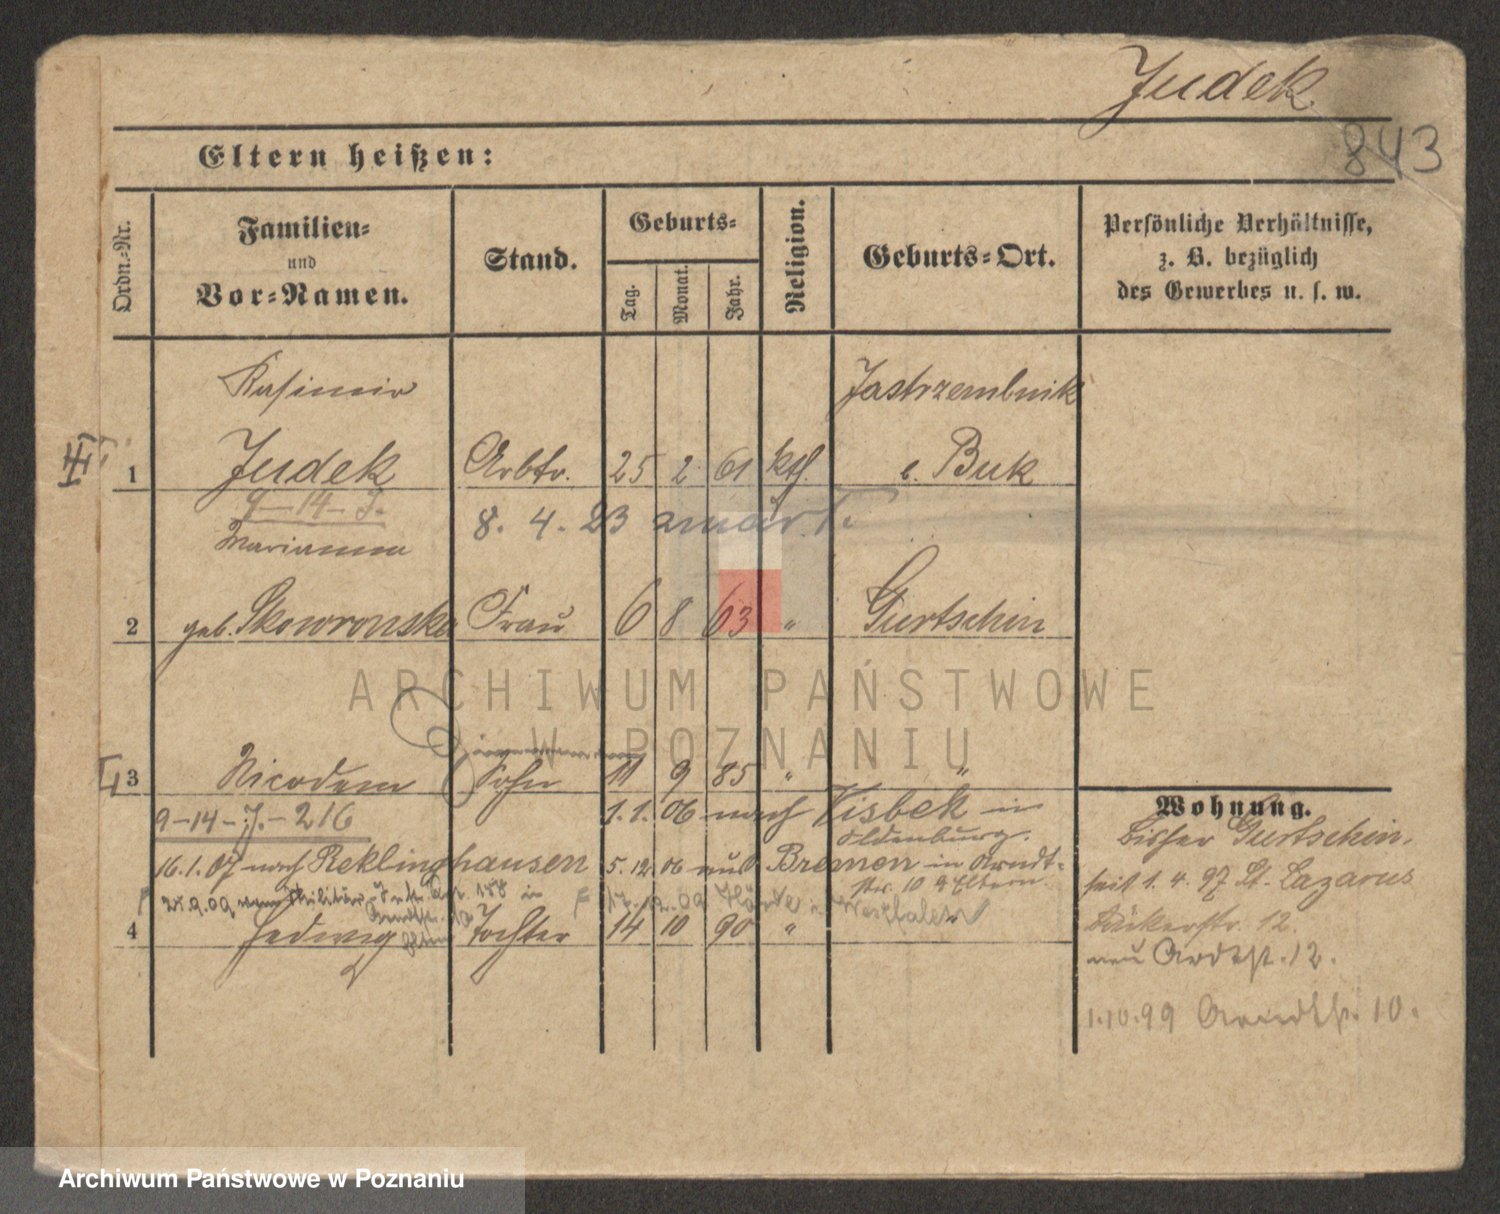 Judek
843
Eltern heißen:
Ordn.-Nr.
Familien-
und
Vor-Namen.
Stand.
Geburts-
Tag.
Monat.
Jahr.
Religion.
Geburts-Ort.
Persönliche Verhältnisse,
z. B. bezüglich
des Gewerbes u. s. w.
Kasimir Jastrzembnik
1 Judek Arbtr. 25 2 61 kth. b. Buk
9-14-J.
8. 4. 23
Marianna
2 geb. Skowronska Frau 6 8 63 " Gurtschin
ARCHIWUM PAŃSTWOWE
W POZNANIU
3 Nicodem Sohn 11 9 85 " "
9-14-J.-216 1.1.06 nach Visbek in
Oldenburg.
16.1.07 nach Reklinghausen 5.12.06 aus Bremen in Arndt-
str. 10 Eltern.
17.12.09 Hörde Westfalen
4 Hedwig Tochter 14 10 90 " "
Wohnung.
bisher Gurtschin.
seit 1.4.97 St. Lazarus
12.
neu Ardtst. 12.
1.10.99 Arndtst. 10.
Archiwum Państwowe w Poznaniu